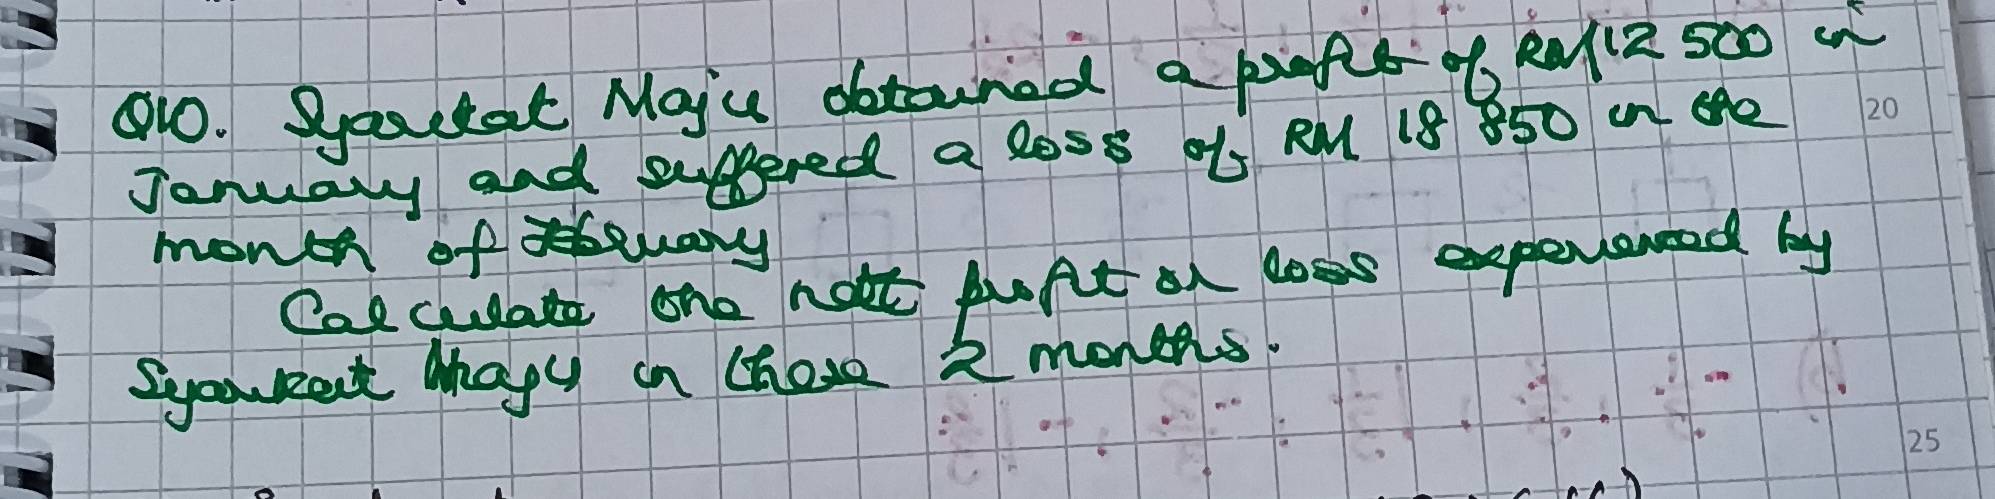 Q10. Syarikat Maju obtained a profit of RM12 500 in
January and suffered a loss of RM 18 850 in the
month of February
Calculate the nett profit or loss experienced by
Syarikat Maju in these 2 months.
20
25